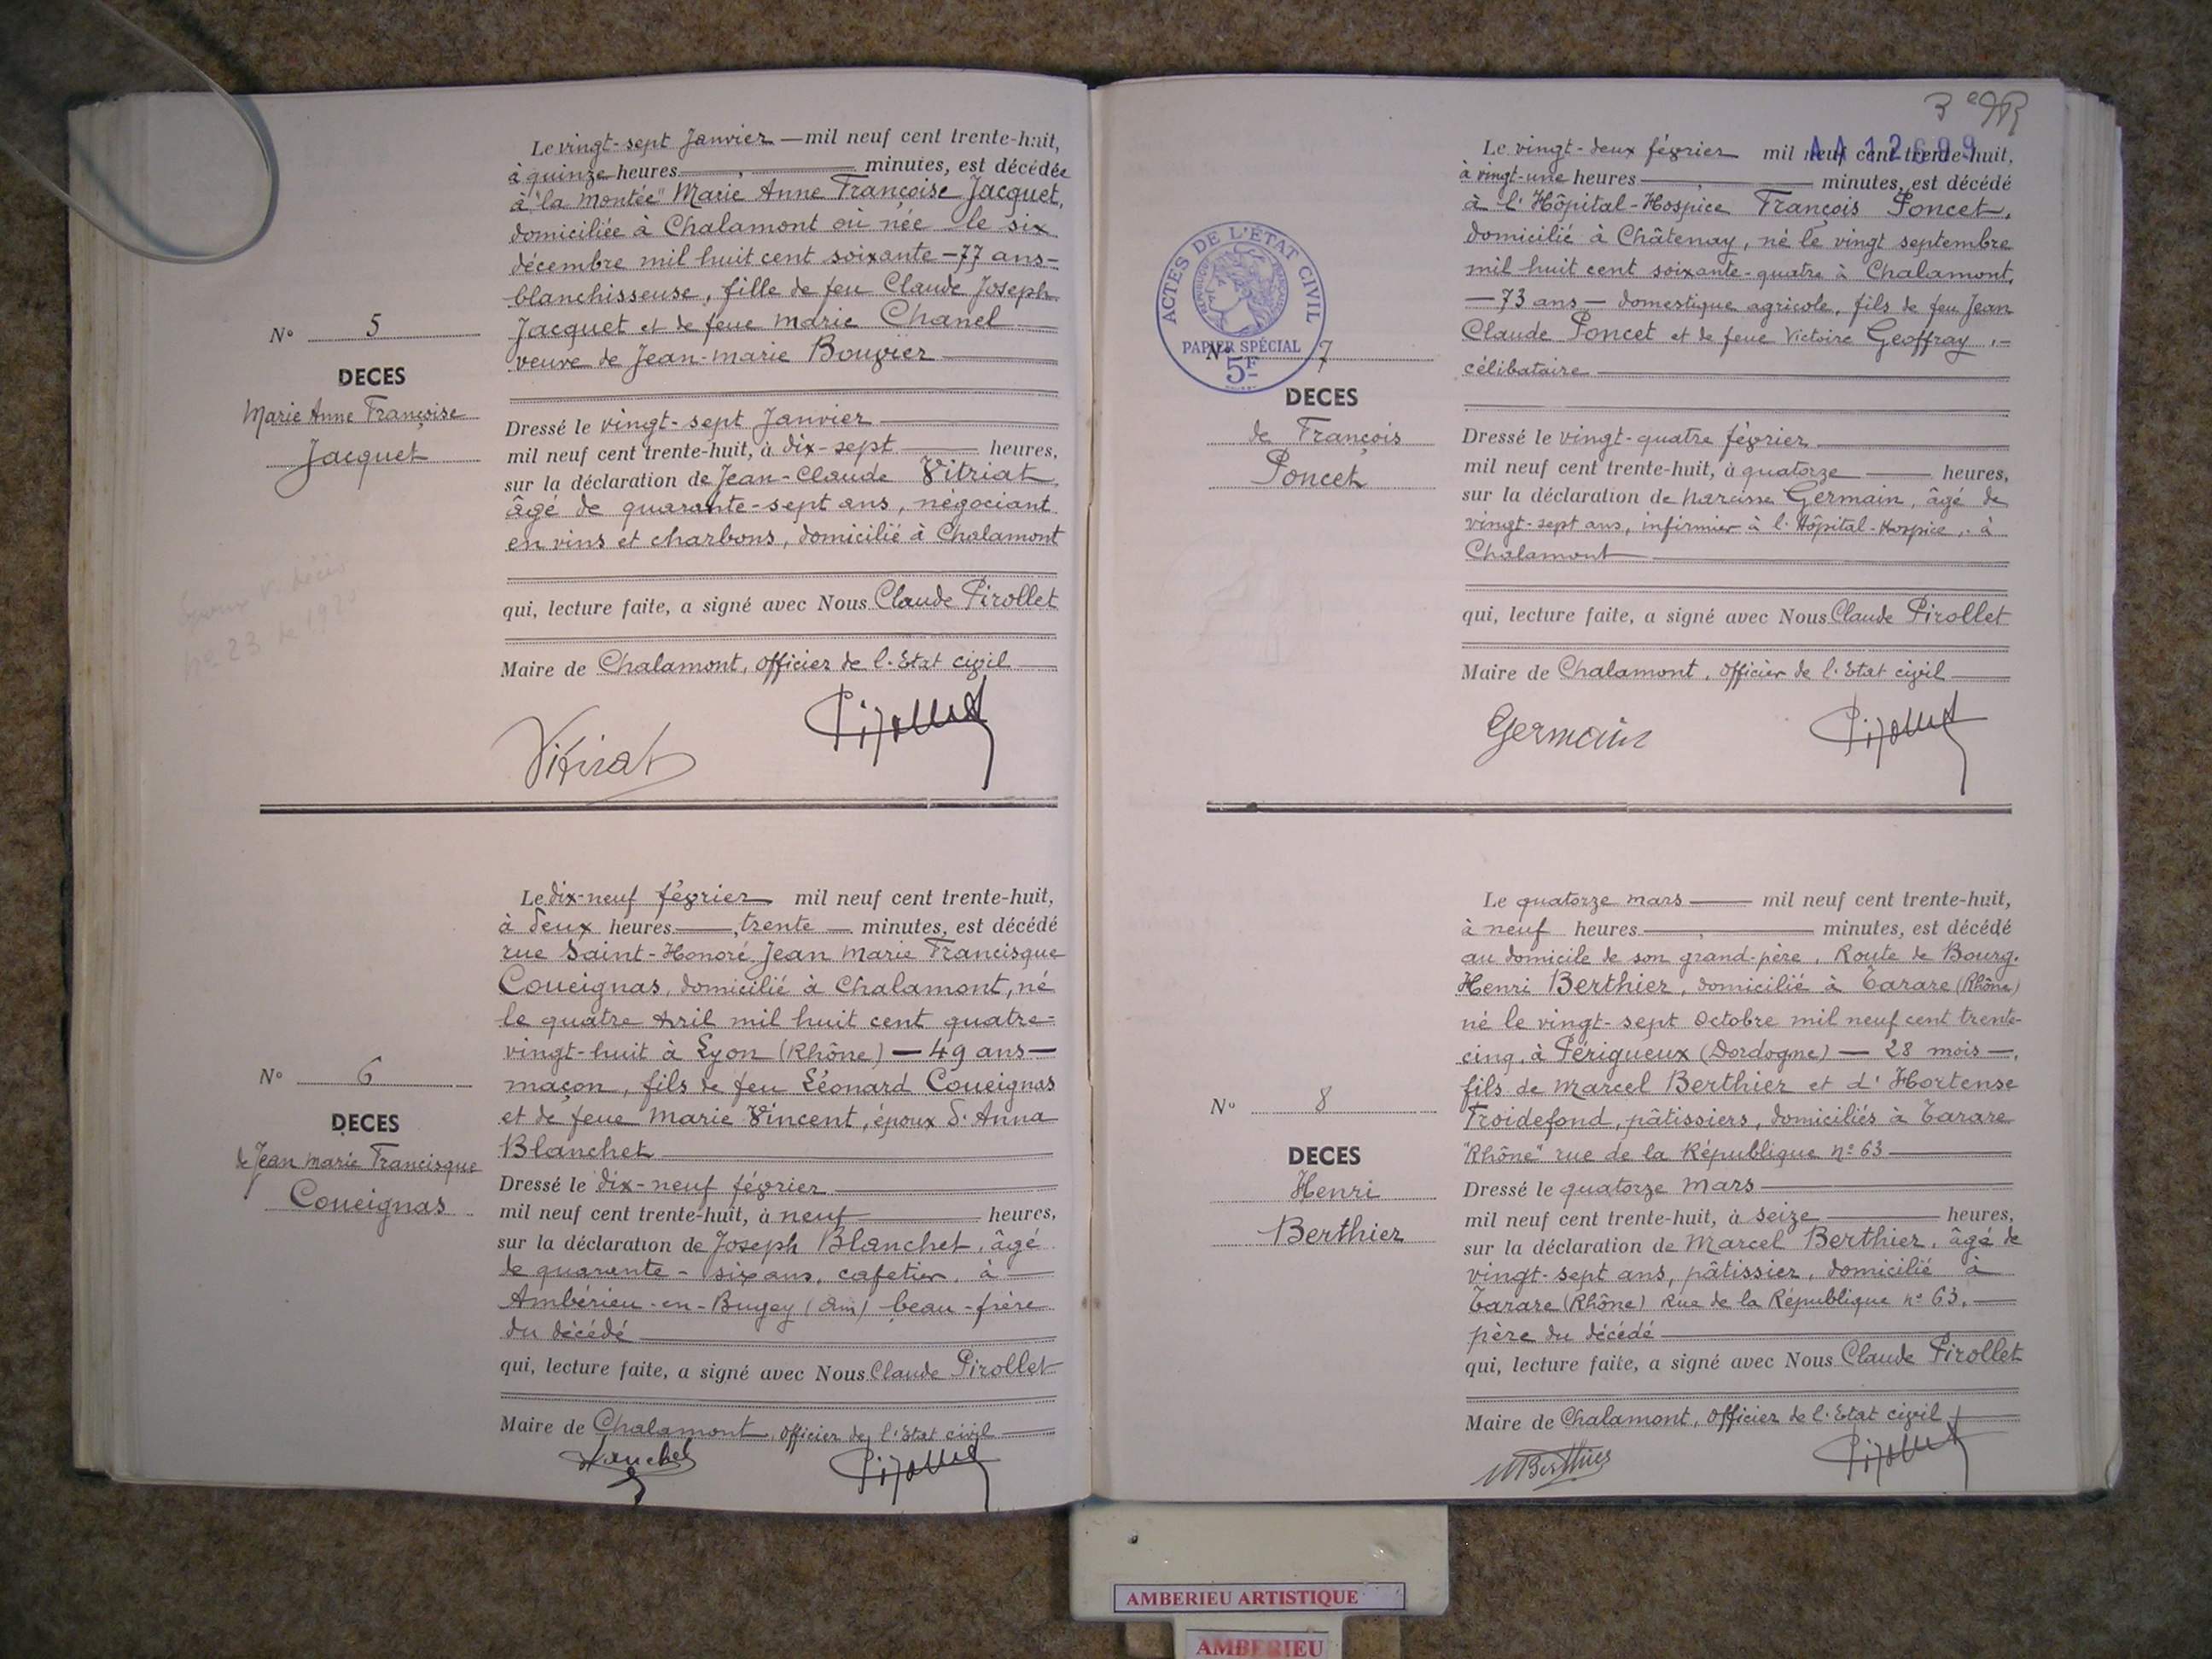 N° 5
DECES
Marie Anne Françoise
Jacquet
Le vingt-sept Janvier — mil neuf cent trente-huit,
à quinze heures —, — minutes, est décédée
à "la montée" Marie Anne Françoise Jacquet,
domiciliée à Chalamont où née le six
décembre mil huit cent soixante — 77 ans —
blanchisseuse, fille de feu Claude Joseph
Jacquet et de feue Marie Chanel
veuve de Jean-Marie Bouvier
Dressé le vingt-sept Janvier
mil neuf cent trente-huit, à dix-sept heures,
sur la déclaration de Jean-Claude Vitriat,
âgé de quarante-sept ans, négociant
en vins et charbons, domicilié à Chalamont
qui, lecture faite, a signé avec Nous Claude Pirollet
Maire de Chalamont, Officier de l'Etat civil
N° 6
DECES
de Jean Marie Francisque
Coueignas
Le dix-neuf février mil neuf cent trente-huit,
à deux heures —, trente — minutes, est décédé
rue Saint-Honoré Jean Marie Francisque
Coueignas, domicilié à Chalamont, né
le quatre Avril mil huit cent quatre-
vingt-huit à Lyon (Rhône) — 49 ans —
maçon, fils de feu Léonard Coueignas
et de feue Marie Vincent, époux d'Anna
Blanchet
Dressé le dix-neuf février
mil neuf cent trente-huit, à neuf heures,
sur la déclaration de Joseph Blanchet, âgé
de quarante-six ans, cafetier, à
Ambérieu-en-Bugey (Ain) beau-frère
du décédé
qui, lecture faite, a signé avec Nous Claude Pirollet
Maire de Chalamont, Officier de l'Etat civil
3e
AA 12699
ACTES DE L'ÉTAT CIVIL
PAPIER SPÉCIAL
5F
N° 7
DECES
de François
Poncet
Le vingt-deux février mil neuf cent trente-huit,
à vingt-une heures —, — minutes, est décédé
à l'Hôpital-Hospice François Poncet,
domicilié à Châtenay, né le vingt septembre
mil huit cent soixante-quatre à Chalamont,
— 73 ans — domestique agricole, fils de feu Jean
Claude Poncet et de feue Victoire Geoffray, -
célibataire
Dressé le vingt-quatre février
mil neuf cent trente-huit, à quatorze heures,
sur la déclaration de Narcisse Germain, âgé de
vingt-sept ans, infirmier à l'Hôpital-Hospice, à
Chalamont
qui, lecture faite, a signé avec Nous Claude Pirollet
Maire de Chalamont, Officier de l'Etat civil
Germain
N° 8
DECES
Henri
Berthier
Le quatorze mars — mil neuf cent trente-huit,
à neuf heures —, — minutes, est décédé
au domicile de son grand-père, Route de Bourg.
Henri Berthier, domicilié à Tarare (Rhône)
né le vingt-sept Octobre mil neuf cent trente-
cinq, à Périgueux (Dordogne) — 28 mois —,
fils de Marcel Berthier et d'Hortense
Froidefond, pâtissiers, domiciliés à Tarare
"Rhône" rue de la République n° 63
Dressé le quatorze Mars
mil neuf cent trente-huit, à seize heures,
sur la déclaration de Marcel Berthier, âgé de
vingt-sept ans, pâtissier, domicilié à
Tarare (Rhône) Rue de la République n° 63,
père du décédé
qui, lecture faite, a signé avec Nous Claude Pirollet
Maire de Chalamont, Officier de l'Etat civil
MBerthier
AMBERIEU ARTISTIQUE
AMBERIEU